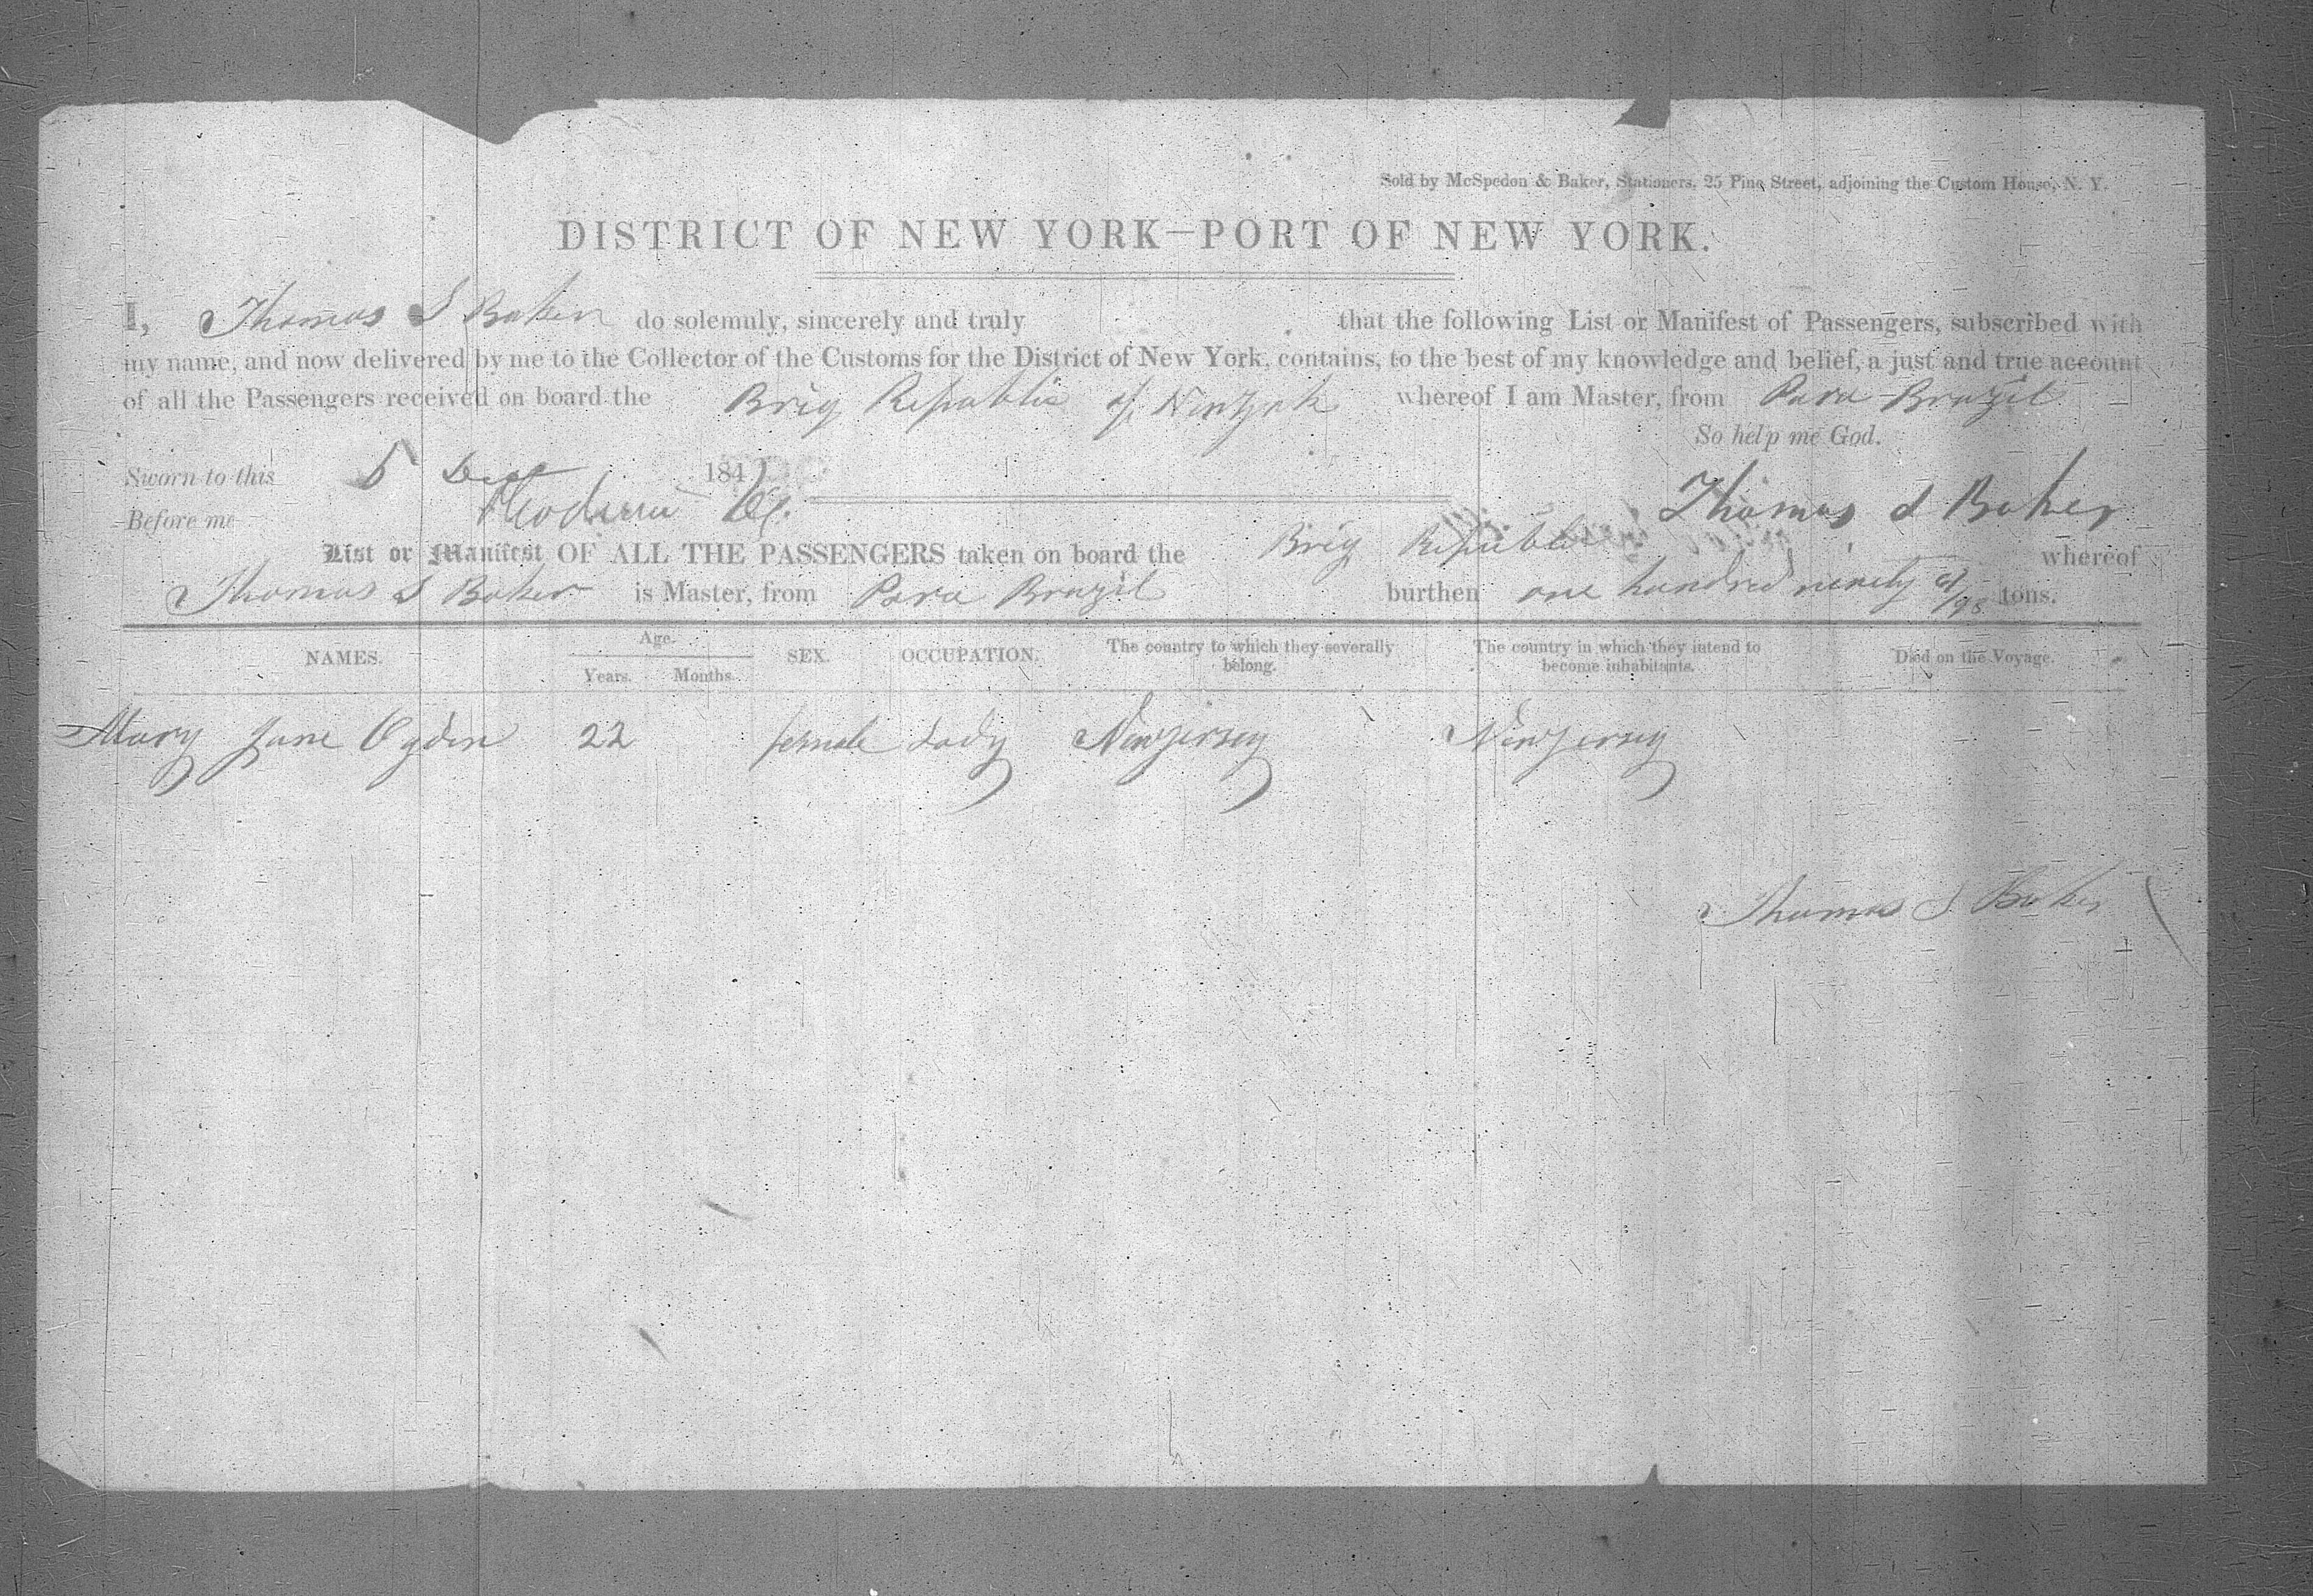 Sold by McSpedon & Baker, Stationers, 25 Pine Street, adjoining the Custom House, N. Y.
DISTRICT OF NEW YORK—PORT OF NEW YORK.
I, Thomas S Baker do solemnly, sincerely and truly that the following List or Manifest of Passengers, subscribed with
my name, and now delivered by me to the Collector of the Customs for the District of New York, contains, to the best of my knowledge and belief, a just and true account
of all the Passengers received on board the Brig Republic of New York whereof I am Master, from Para Brazil
So help me God.
Sworn to this 5 184
Before me Thomas S Baker
List or Manifest OF ALL THE PASSENGERS taken on board the Brig Republic whereof
Thomas S Baker is Master, from Para Brazil burthen one hundred ninety /95 tons.
NAMES. Age. Years. Months. SEX. OCCUPATION. The country to which they severally belong. The country in which they intend to become inhabitants. Died on the Voyage.
Mary Jane Ogden 22 female Lady New Jersey New Jersey
Thomas S Baker